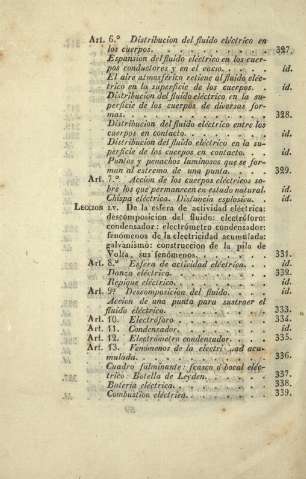 Art. 6.º Distribucion del fluido eléctrico en
los cuerpos. . . . . . . . . . . . 327.
Espansion del fluido eléctrico en los cuer-
pos conductores y en el vacio. . . . . . id.
El aire atmosférico retiene al fluido eléc-
trico en la superficie de los cuerpos. . . id.
Distribucion del fluido eléctrico en la su-
perficie de los cuerpos de diversas for-
mas. . . . . . . . . . . . . . . 328.
Distribucion del fluido eléctrico entre los
cuerpos en contacto. . . . . . . . . id.
Distribucion del fluido eléctrico en la su-
perficie de los cuerpos en contacto. . . id.
Puntas y penachos luminosos que se for-
man al estremo de una punta. . . . . 329.
Art. 7.º Accion de los cuerpos eléctricos so-
bre los que permanecen en estado natural. id.
Chispa eléctrica. Distancia esplosiva. . . id.
LECCION LV. De la esfera de actividad eléctrica:
descomposicion del fluido: electróforo:
condensador: electrómetro condensador:
fenómenos de la electricidad acumulada:
galvanismo: construccion de la pila de
Volta, sus fenómenos. . . . . . . . 331.
Art. 8.º Esfera de actividad eléctrica. . . id.
Danza eléctrica. . . . . . . . . . 332.
Repique eléctrico. . . . . . . . . . id.
Art. 9.º Descomposicion del fluido. . . . id.
Accion de una punta para sustraer el
fluido eléctrico. . . . . . . . . . 333.
Art. 10. Electróforo. . . . . . . . . 334.
Art. 11. Condensador. . . . . . . . . id.
Art. 12. Electrómetro condensador. . . . 335.
Art. 13. Fenómenos de la electri ad acu-
mulada. . . . . . . . . . . . . 336.
Cuadro fulminante: frasco ó bocal eléc-
trico Botella de Leyden. . . . . . . 337.
Bateria eléctrica. . . . . . . . . . 338.
Combustion eléctrica. . . . . . . . . 339.